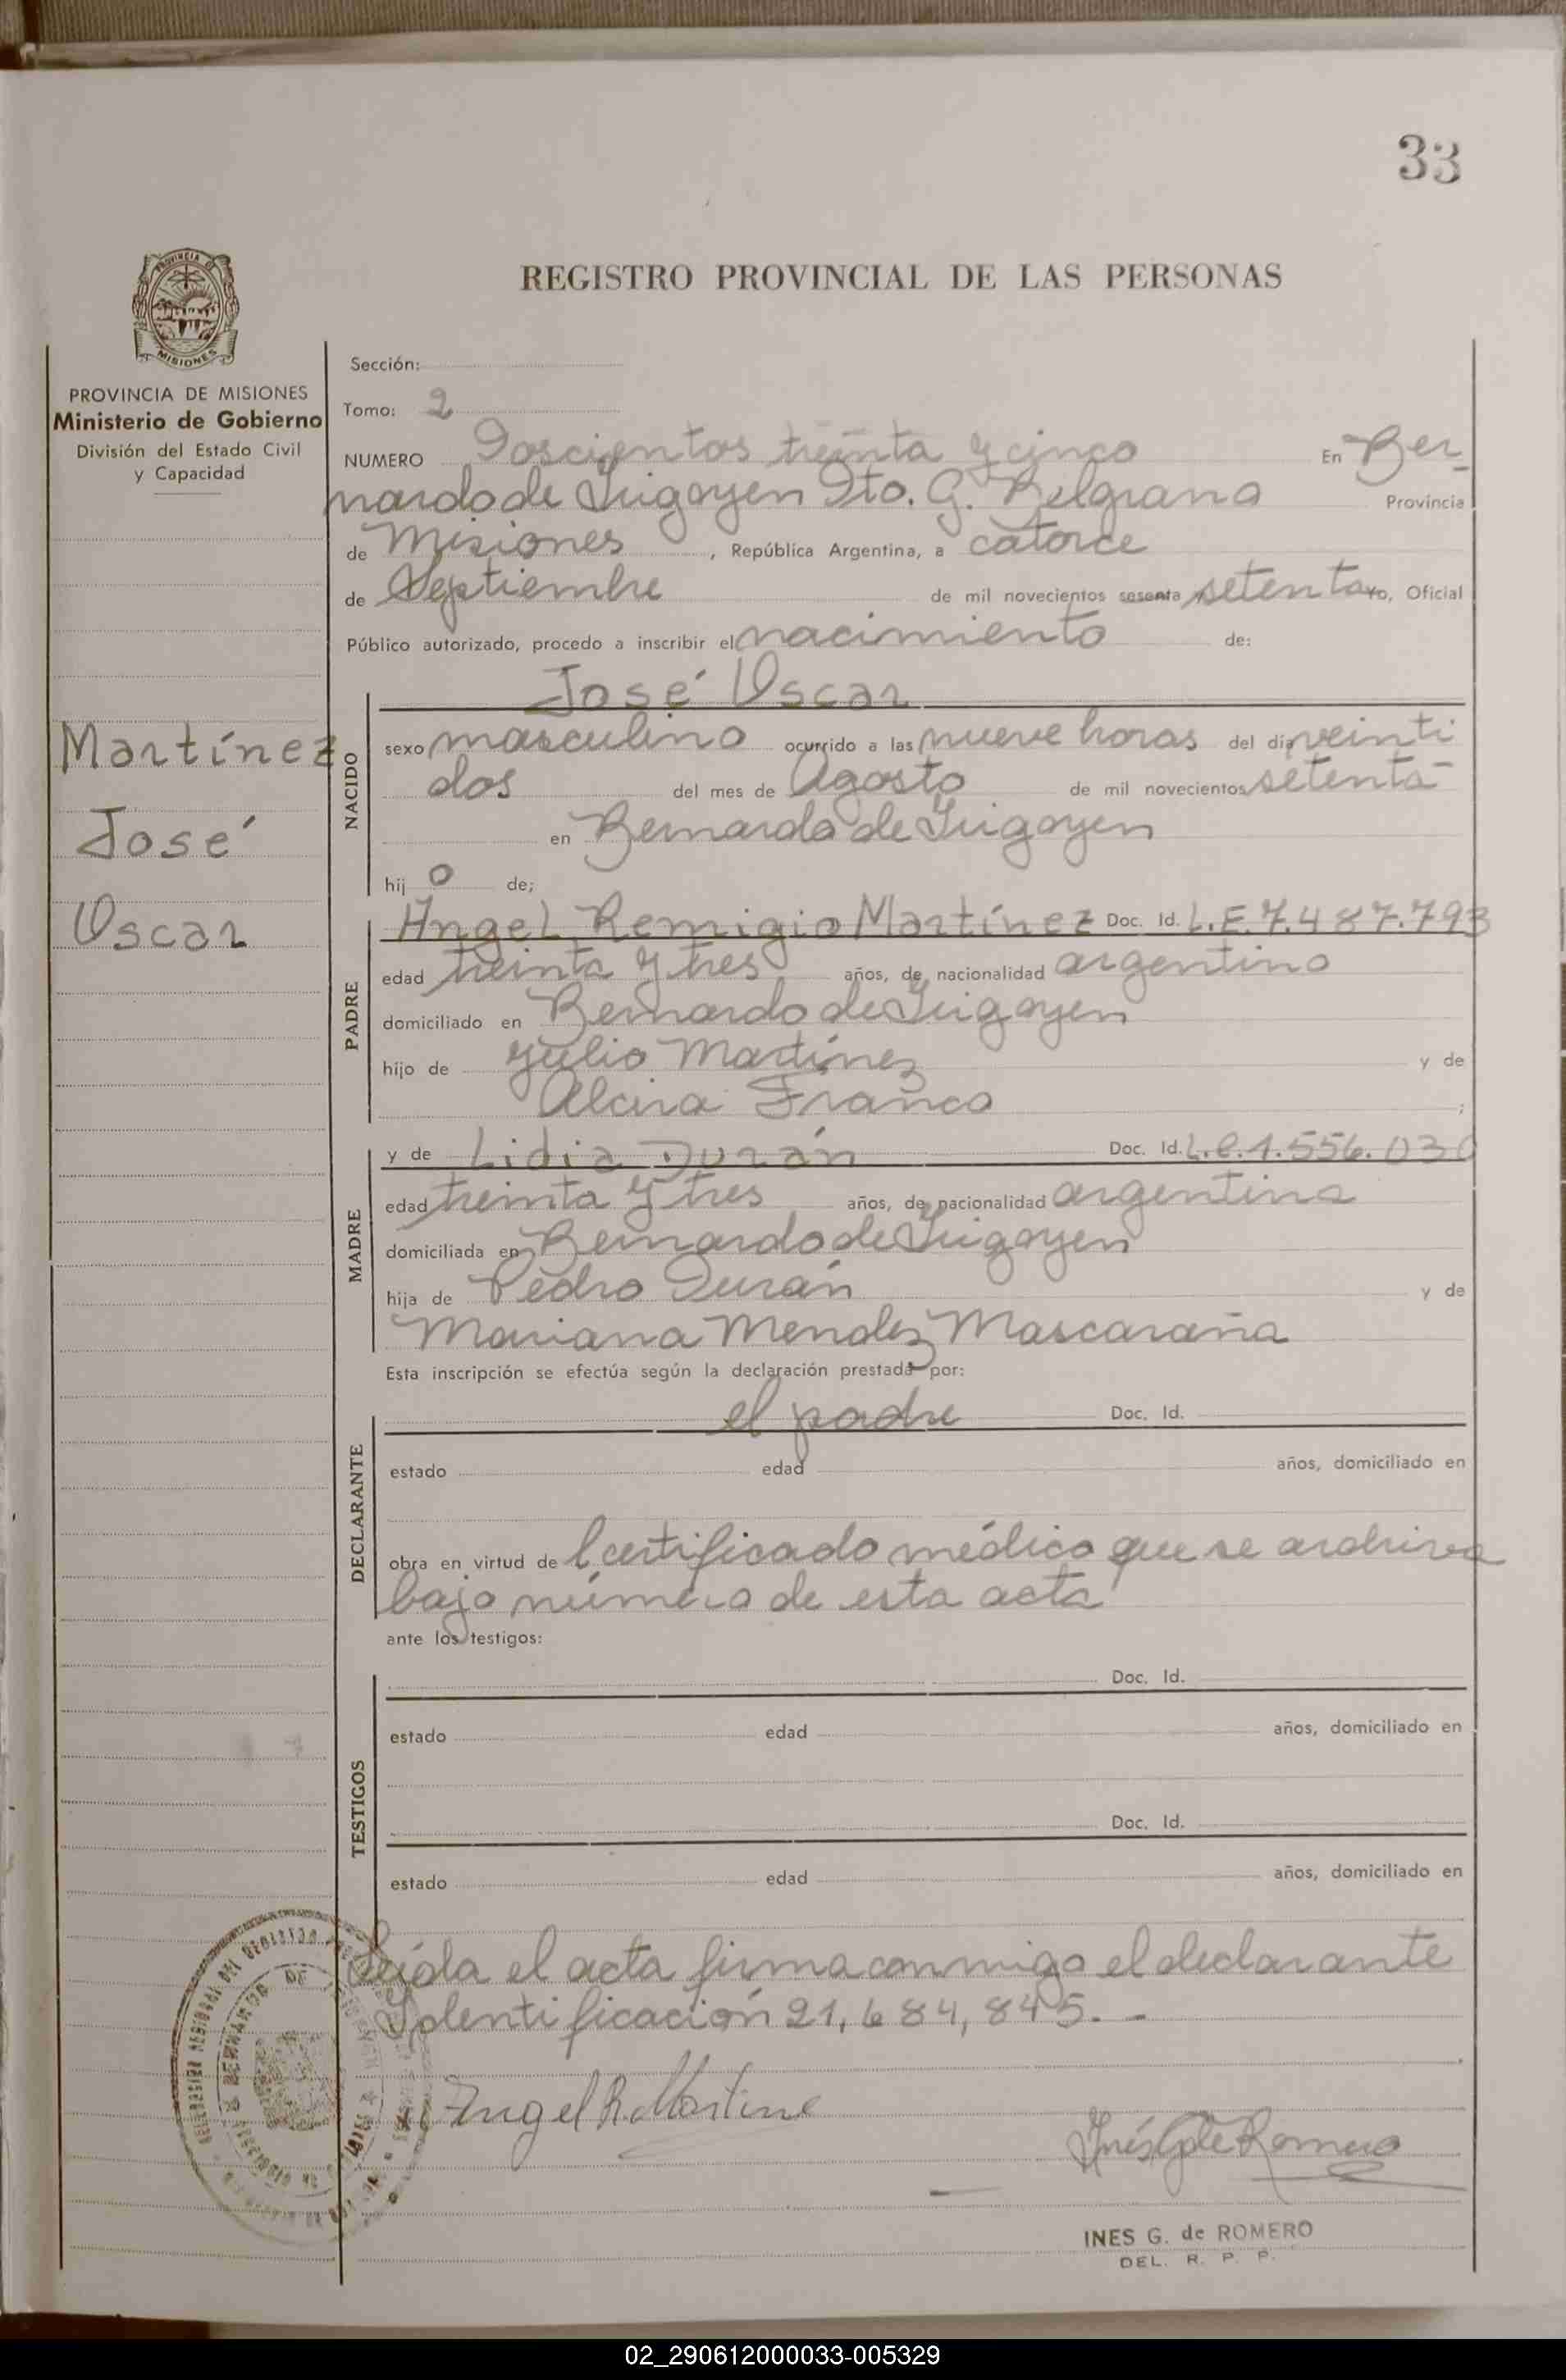 33
REGISTRO PROVINCIAL DE LAS PERSONAS
PROVINCIA DE MISIONES
Ministerio de Gobierno
División del Estado Civil
y Capacidad
Martínez
José
Oscar
Sección:
Tomo: 2
NUMERO Doscientos treinta y cinco En Ber-
nardo de Irigoyen Dto. G. Belgrano Provincia
de Misiones, República Argentina, a catorce
de Septiembre de mil novecientos sesenta setenta Yo, Oficial
Público autorizado, procedo a inscribir el nacimiento de:
José Oscar
NACIDO
sexo masculino ocurrido a las nueve horas del día veinti
dos del mes de Agosto de mil novecientos setenta
en Bernardo de Irigoyen
hij o de;
PADRE
Angel Remigio Martínez Doc. Id. L.E. 7.487.793
edad treinta y tres años, de nacionalidad argentino
domiciliado en Bernardo de Irigoyen
hijo de Julio Martínez y de
Alcira Franco ;
MADRE
y de Lidia Durán Doc. Id. L.C. 1.556.030
edad treinta y tres años, de nacionalidad argentina
domiciliada en Bernardo de Irigoyen
hija de Pedro Durán y de
Mariana Mendez Mascaraña
Esta inscripción se efectúa según la declaración prestada por:
DECLARANTE
el padre Doc. Id.
estado edad años, domiciliado en
obra en virtud de l certificado médico que se archiva
bajo número de esta acta
ante los testigos:
TESTIGOS
Doc. Id.
estado edad años, domiciliado en
Doc. Id.
estado edad años, domiciliado en
Leida el acta firma conmigo el declarante
Identificación 21,684,845.-
Angel R. Martine
Inés G de Romero
INES G. de ROMERO
DEL. R. P. P.
02_290612000033-005329